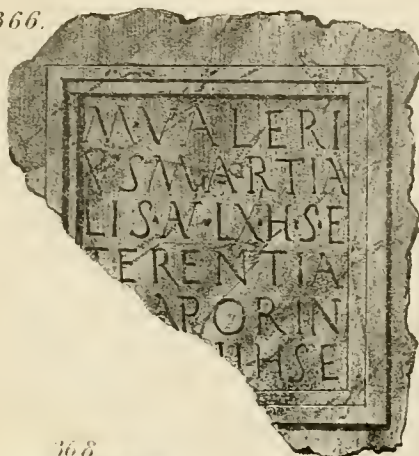 366.
M·VALERI
VSMARTIA
LIS·AN·LX·H·S·E
TERENTIA
APORIN
IIHSE
368